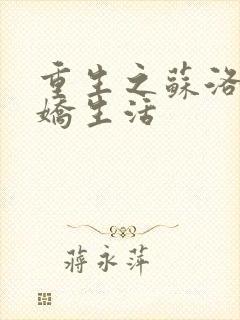 重生之蘇洛
嬌生活
蔣永萍